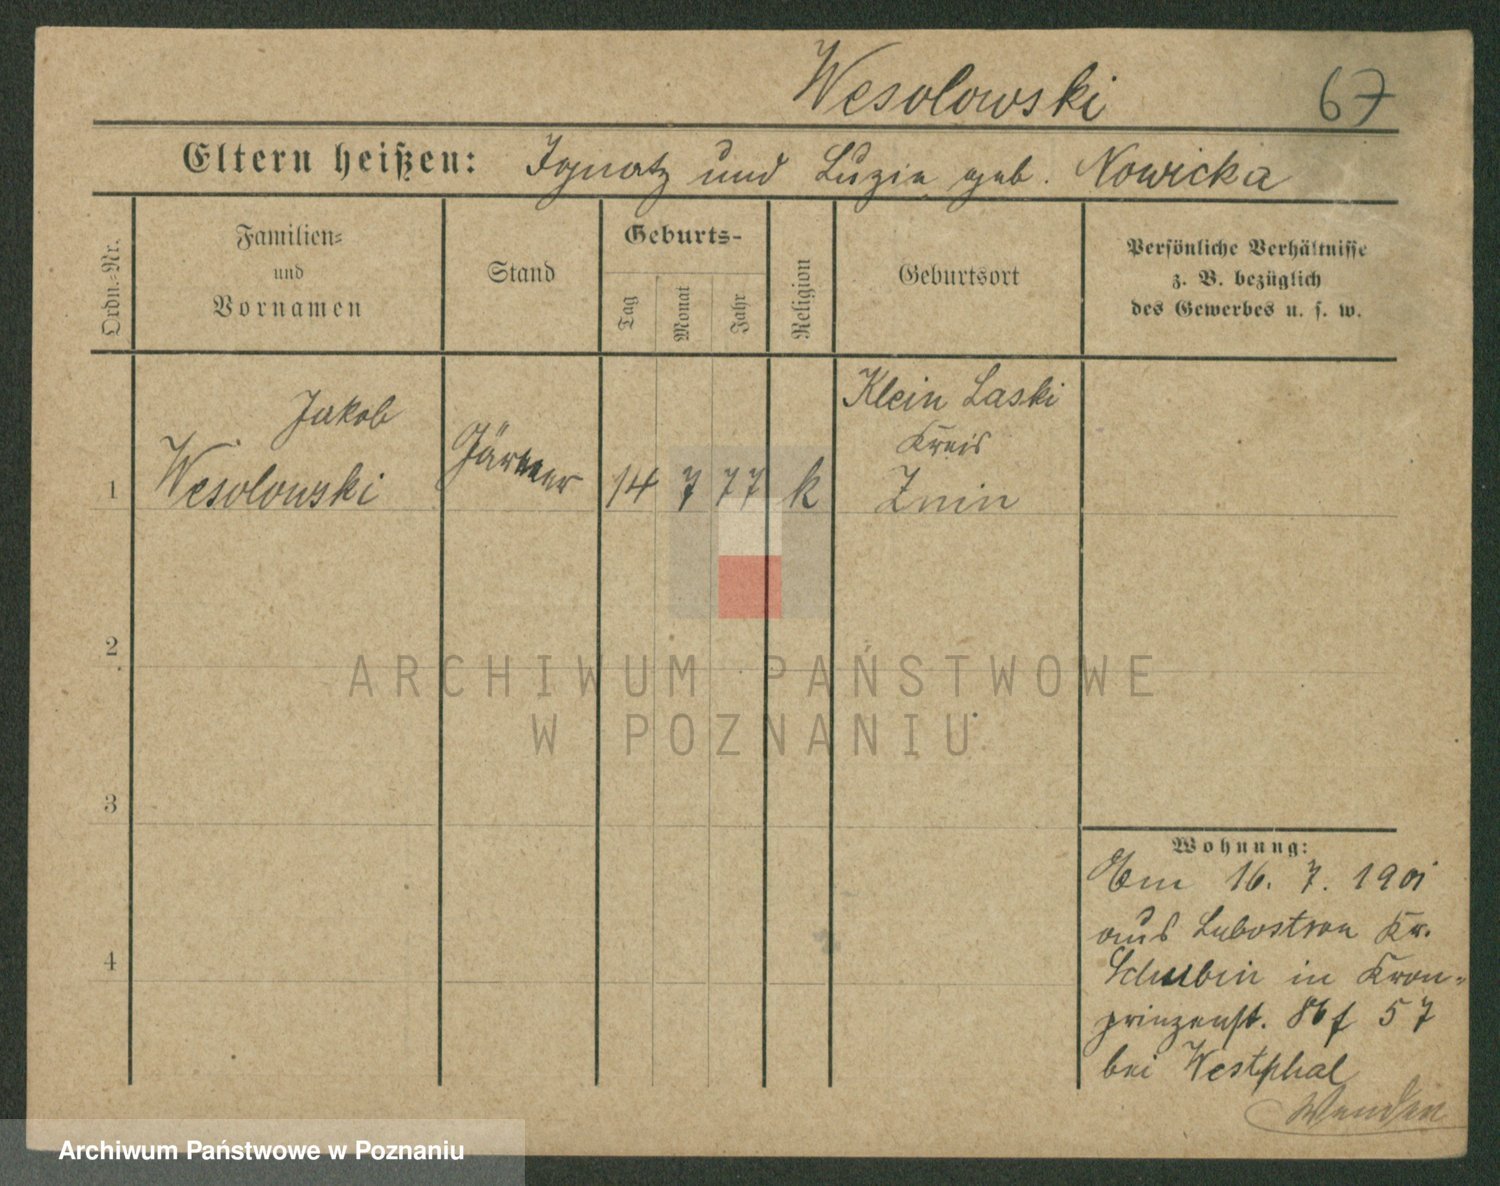 Wesolowski
67
Eltern heißen: Ignatz und Luzia geb. Nowicka
Ordn.-Nr.
Familien-
und
Vornamen
Stand
Geburts-
Tag
Monat
Jahr
Religion
Geburtsort
Persönliche Verhältnisse
z. B. bezüglich
des Gewerbes u. s. w.
1
Jakob
Wesolowski
Gärtner
14
7
77
k
Klein Laski
Kreis
Znin
2
3
4
ARCHIWUM PAŃSTWOWE
W POZNANIU
Wohnung:
Am 16. 7. 1901
aus Lubostron Kr.
Schubin in Kron-
prinzenst. 57
bei Westphal
Archiwum Państwowe w Poznaniu